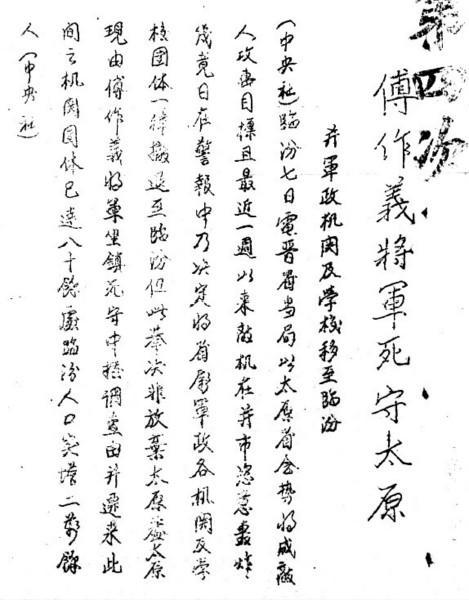 第四次
傅作義將軍死守太原
并軍政机関及学校移至臨汾
(中央社)臨汾七日電晋省当局以太原省会势将成敵
人攻击目標且最近一週以来敵机在并市恣意轟炸
幾竟日在警報中乃决定将省府軍政各机関及学
校団体一律撤退至臨汾但此举决非放棄太原盖太原
現由傅作義将軍坐鎮死守中据調查由并遷来此
間之机関団体已達八十餘處臨汾人口突增二萬餘
人(中央社)